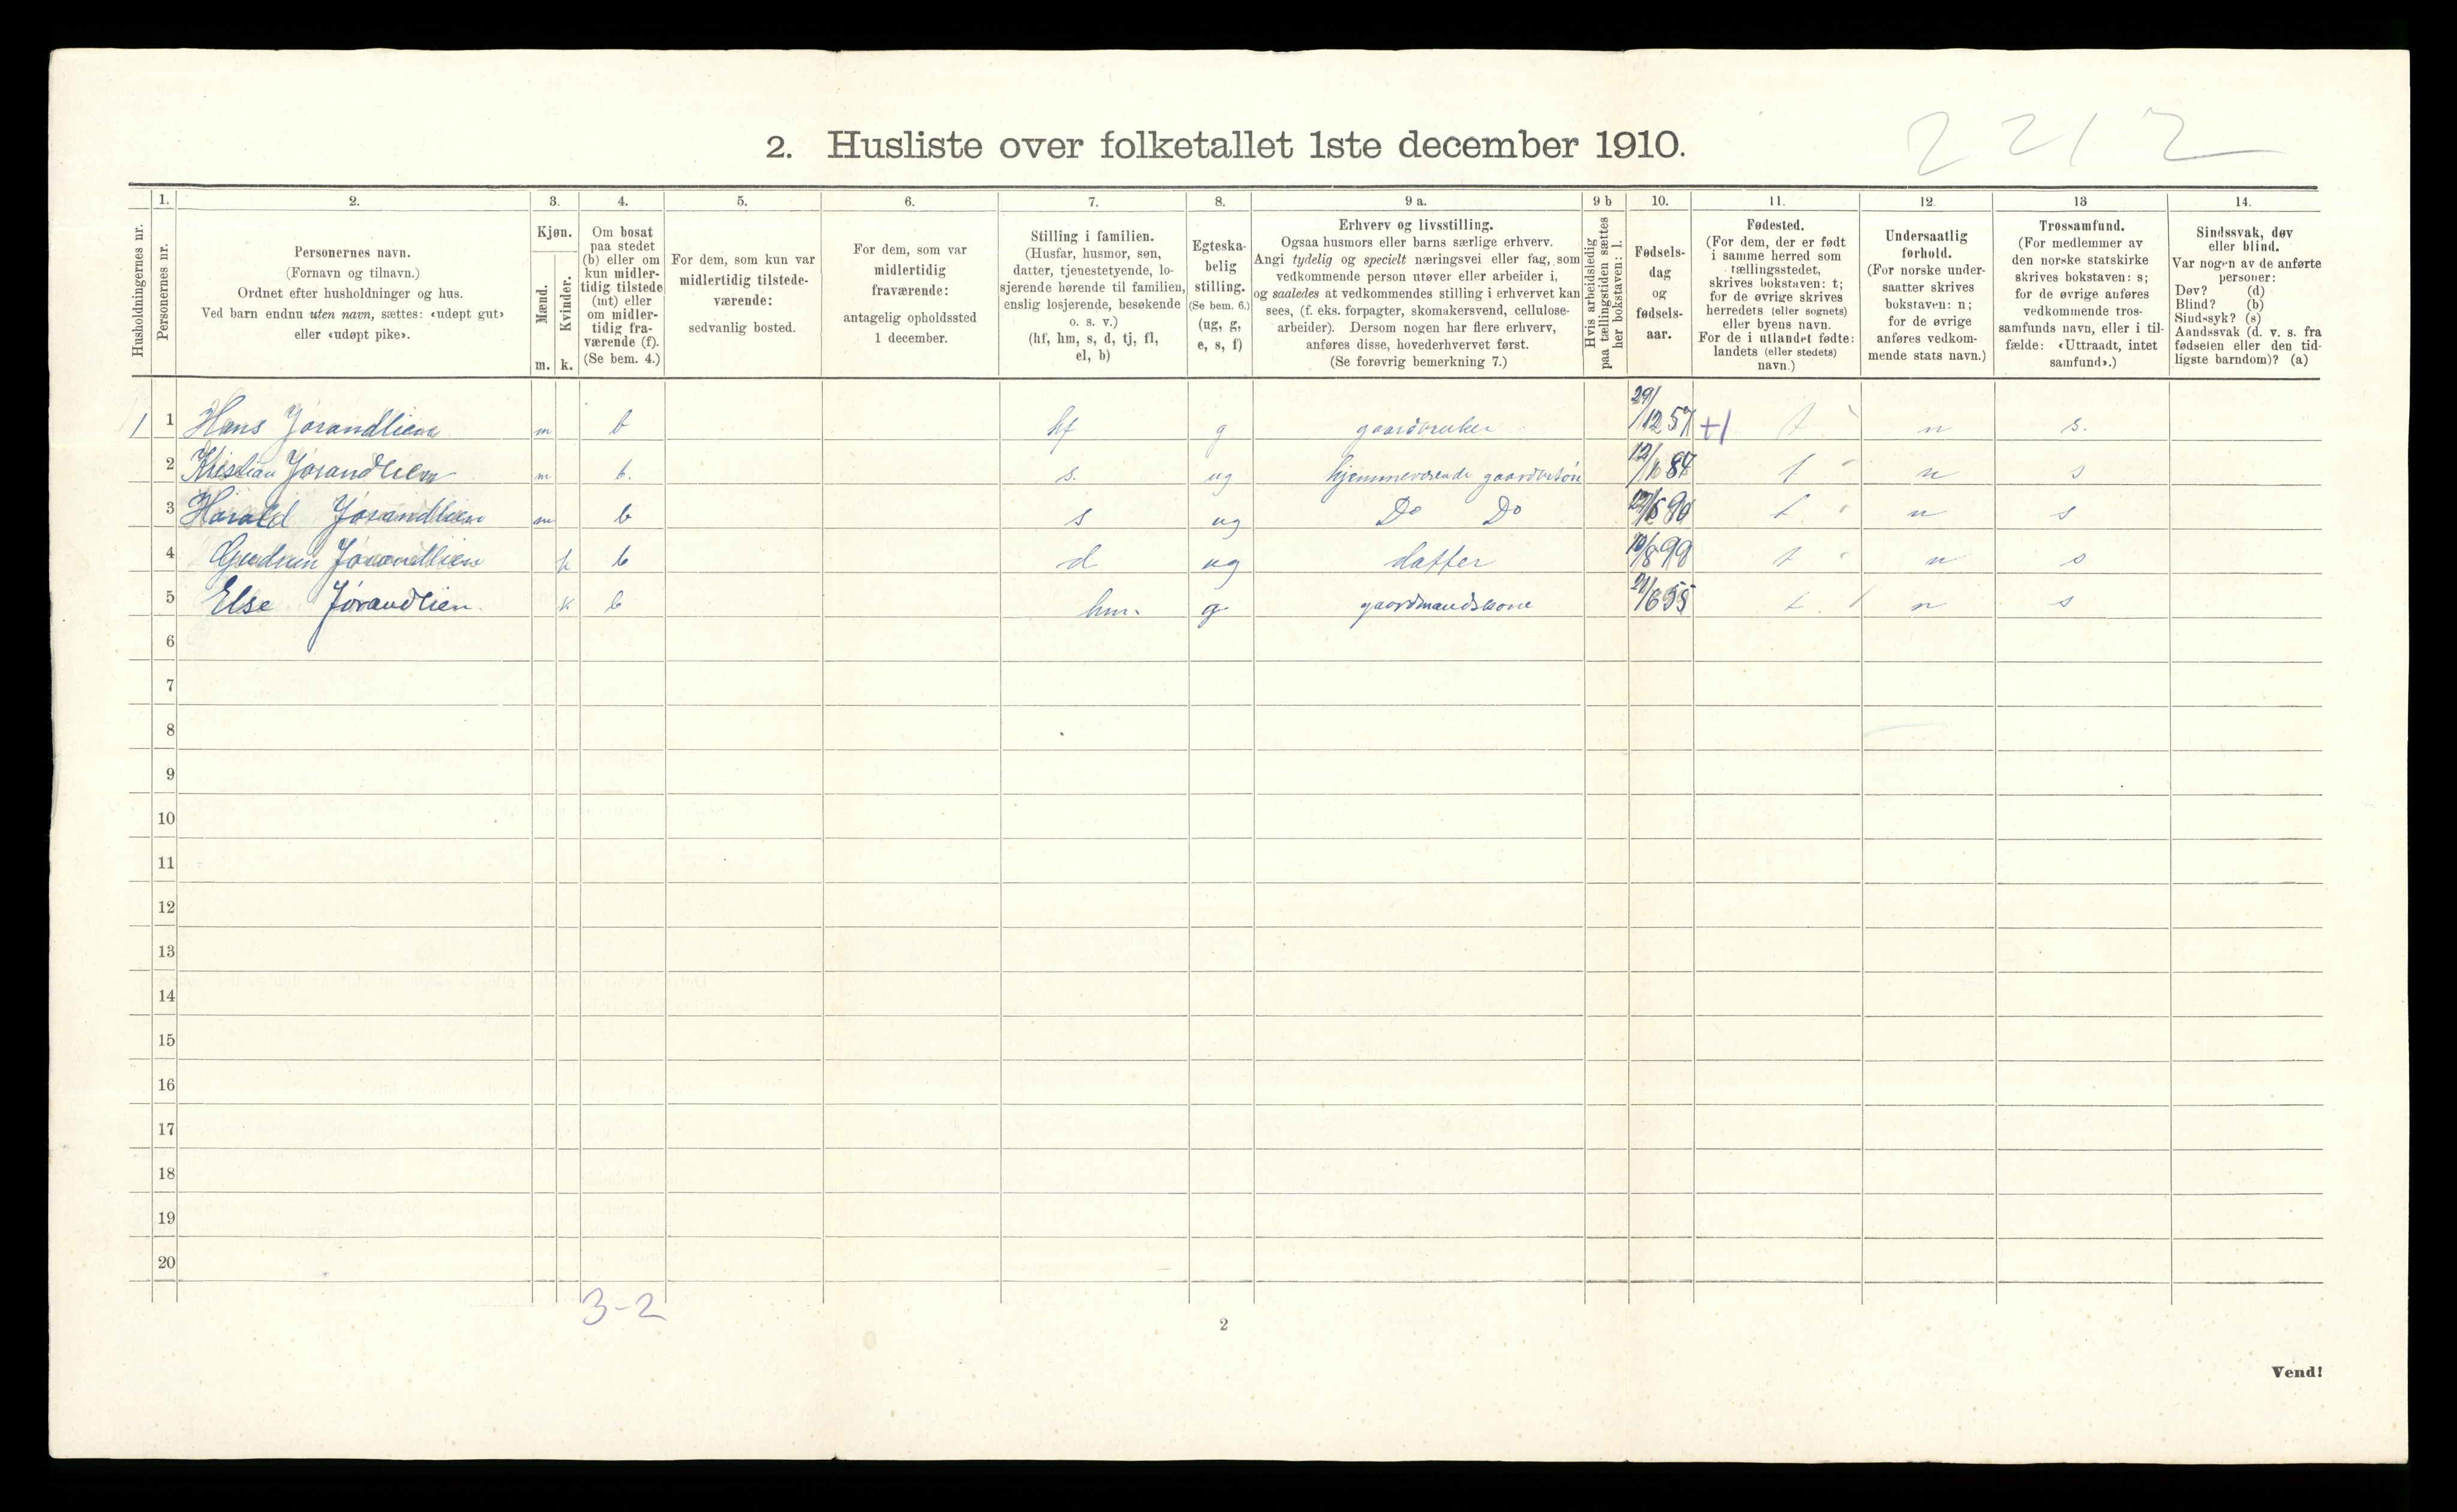 2212
2. Husliste over folketallet 1ste december 1910.
Husholdningernes nr.
1.
Personernes nr.
2.
Personernes navn.
(Fornavn og tilnavn.)
Ordnet efter husholdninger og hus.
Ved barn endnu uten navn, sættes: «udøpt gut»
eller «udøpt pike».
3.
Kjøn.
Mænd.
m.
Kvinder.
k.
4.
Om bosat
paa stedet
(b) eller om
kun midler-
tidig tilstede
(mt) eller
om midler-
tidig fra-
værende (f).
(Se bem. 4.)
5.
For dem, som kun var
midlertidig tilstede-
værende:
sedvanlig bosted.
6.
For dem, som var
midlertidig
fraværende:
antagelig opholdssted
1 december.
7.
Stilling i familien.
(Husfar, husmor, søn,
datter, tjenestetyende, lo-
sjerende hørende til familien,
enslig losjerende, besøkende
o. s. v.)
(hf, hm, s, d, tj, fl,
el, b)
8.
Egteska-
belig
stilling.
(Se bem. 6.)
(ug, g,
e, s, f)
9 a.
Erhverv og livsstilling.
Ogsaa husmors eller barns særlige erhverv.
Angi tydelig og specielt næringsvei eller fag, som
vedkommende person utøver eller arbeider i,
og saaledes at vedkommendes stilling i erhvervet kan
sees, (f. eks. forpagter, skomakersvend, cellulose-
arbeider). Dersom nogen har flere erhverv,
anføres disse, hovederhvervet først.
(Se forøvrig bemerkning 7.)
9 b
Hvis arbeidsledig
paa tællingstiden sættes
her bokstaven: l.
10.
Fødsels-
dag
og
fødsels-
aar.
11.
Fødested.
(For dem, der er født
i samme herred som
tællingsstedet,
skrives bokstaven: t;
for de øvrige skrives
herredets (eller sognets)
eller byens navn.
For de i utlandet fødte:
landets (eller stedets)
navn.)
12.
Undersaatlig
forhold.
(For norske under-
saatter skrives
bokstaven: n;
for de øvrige
anføres vedkom-
mende stats navn.)
13
Trossamfund.
(For medlemmer av
den norske statskirke
skrives bokstaven: s;
for de øvrige anføres
vedkommende tros-
samfunds navn, eller i til-
fælde: «Uttraadt, intet
samfund».)
14.
Sindssvak, døv
eller blind.
Var nogen av de anførte
personer:
Døv? (d)
Blind? (b)
Sindssyk? (s)
Aandssvak (d. v. s. fra
fødselen eller den tid-
ligste barndom)? (a)
1 1 Hans Jørandlien m b hf g gaardbruker 29/12 57 +1 t n s.
2 Kristian Jørandlien m b. s. ug hjemmeværende gaardbrsøn t n s
3 Harald Jørandlien m b s ug Do Do t n s
4 Gudrun Jørandlien k b d ug datter 10/8 98 t n s
5 Else Jørandlien. k b hm. g gaardmandskone 21/6 55 t n s
6
7
8
9
10
11
12
13
14
15
16
17
18
19
20
3-2
2
Vend!